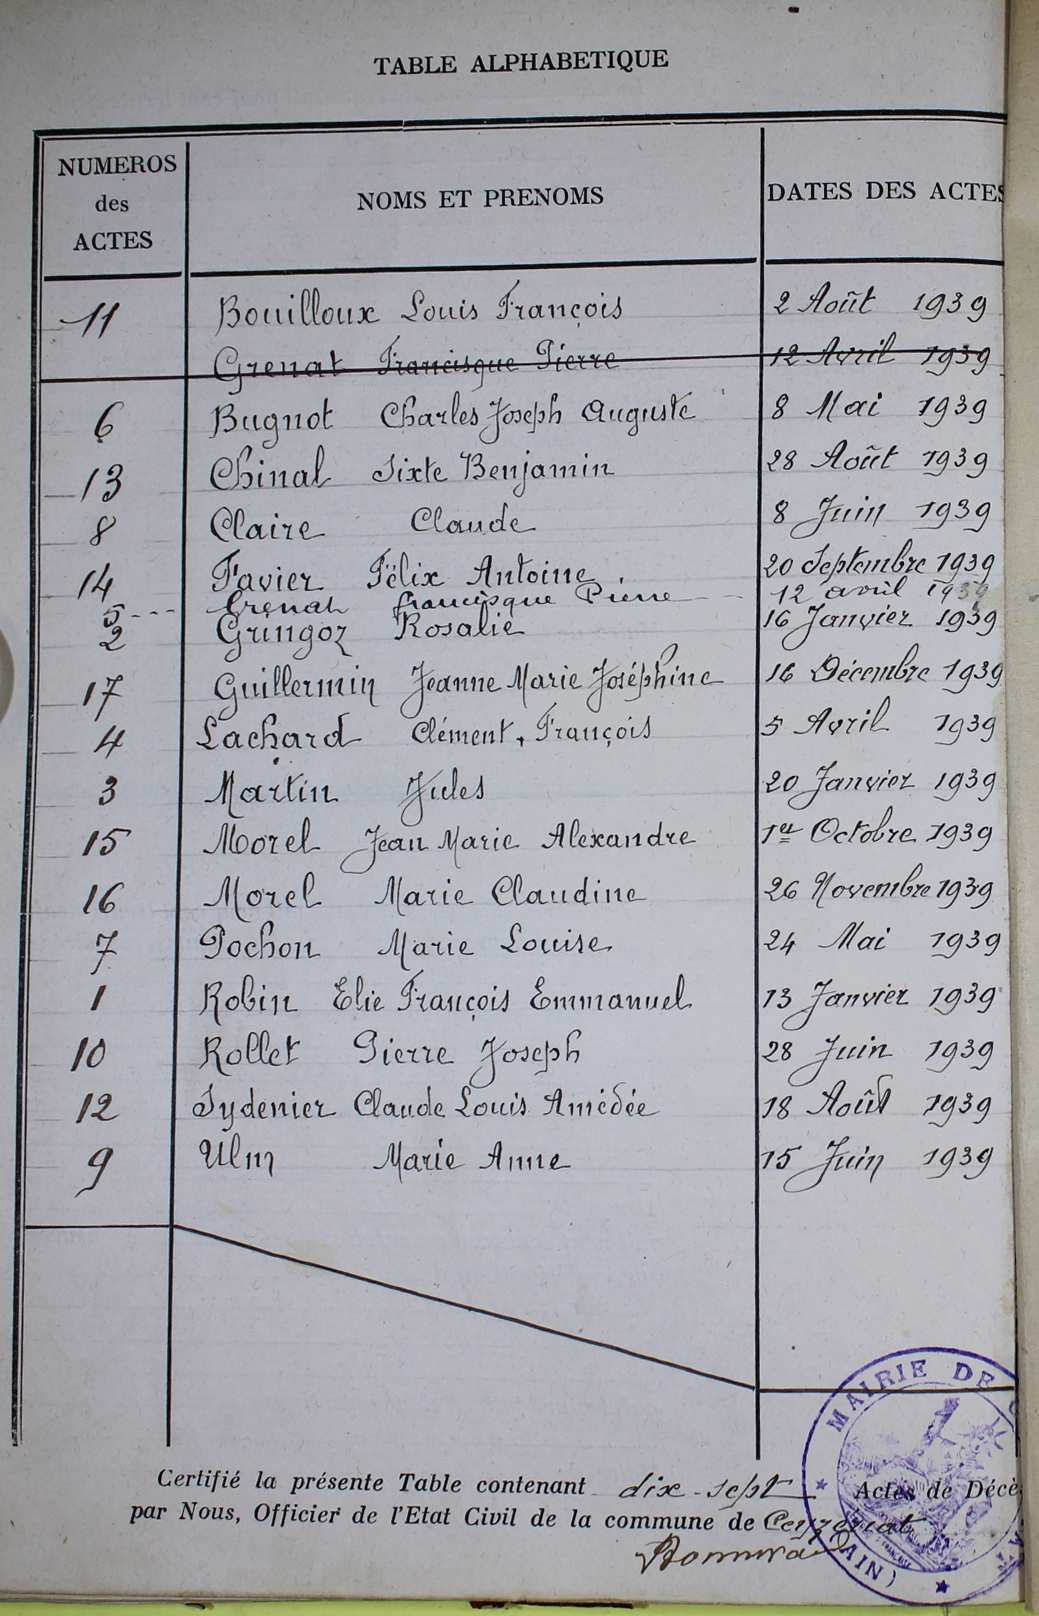 TABLE ALPHABETIQUE
NUMEROS des ACTES NOMS ET PRENOMS DATES DES ACTES
11 Bouilloux Louis François 2 Août 1939
Grenat Francisque Pierre 12 Avril 1939
6 Bugnot Charles Joseph Auguste 8 Mai 1939
13 Chinal Sixte Benjamin 28 Août 1939
8 Claire Claude 8 Juin 1939
14 Favier Félix Antoine 20 Septembre 1939
5 Grenat francisque Pierre 12 avril 1939
2 Gringoz Rosalie 16 Janvier 1939
17 Guillermin Jeanne Marie Joséphine 16 Décembre 1939
4 Lachard Clément, François 5 Avril 1939
3 Martin Jules 20 Janvier 1939
15 Morel Jean Marie Alexandre 1er Octobre 1939
16 Morel Marie Claudine 26 Novembre 1939
7 Pochon Marie Louise 24 Mai 1939
1 Robin Elie François Emmanuel 13 Janvier 1939
10 Rollet Pierre Joseph 28 Juin 1939
12 Sydenier Claude Louis Amédée 18 Août 1939
9 Ulm Marie Anne 15 Juin 1939
MAIRIE DE
Certifié la présente Table contenant dix-sept Actes de Décè
par Nous, Officier de l'Etat Civil de la commune de Ceyzériat
(AIN)